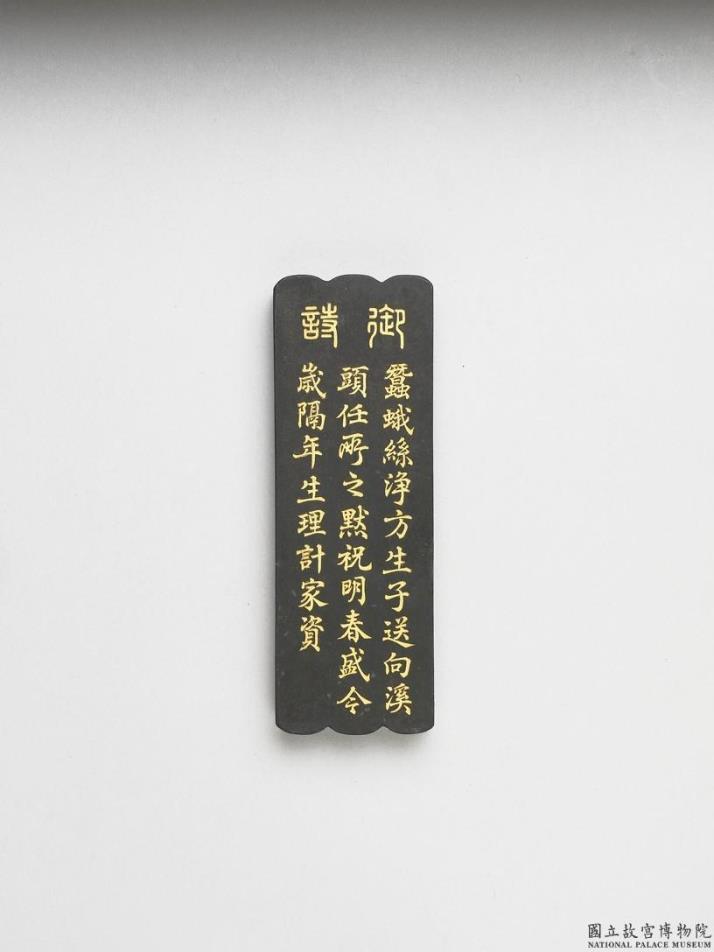 御詩
蠶蛾絲淨方生子送向溪
頭任所之默祝明春盛今
歲隔年生理計家資
國立故宮博物院
NATIONAL PALACE MUSEUM